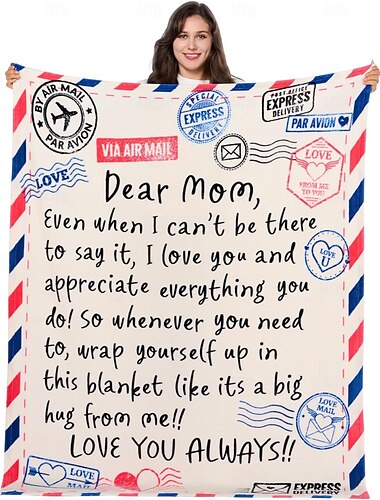 BY AIR MAIL
PAR AVION
SPECIAL
EXPRESS
DELIVERY
POST OFFICE
EXPRESS
DELIVERY
PAR AVION
VIA AIR MAIL
LOVE
FROM ME
TO YOU
LOVE
Dear Mom,
Even when I can't be there
to say it, I love you and
appreciate everything you
do! So whenever you need
to, wrap yourself up in
this blanket like its a big
hug from me!!
LOVE YOU ALWAYS!!
LOVE
U
LOVE
MAIL
LOVE
MAIL
EXPRESS
DELIVERY